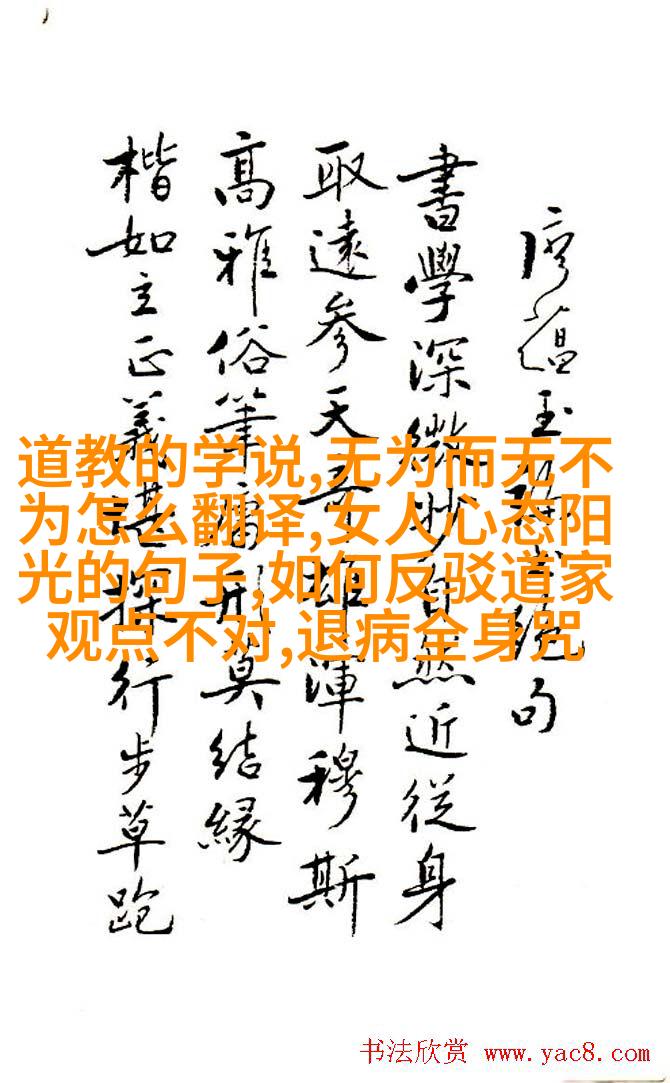 道教的学说,无为而无不
为怎么翻译,女人心态阳
光的句子,如何反驳道家
观点不对,退病全身咒
廖蘊玉句
書學深微妙自然近從身
取遠參天雄渾穆斯
高雅俗筆莫結緣
楷如立正義行步草跑
书法欣赏 www.yac8.com